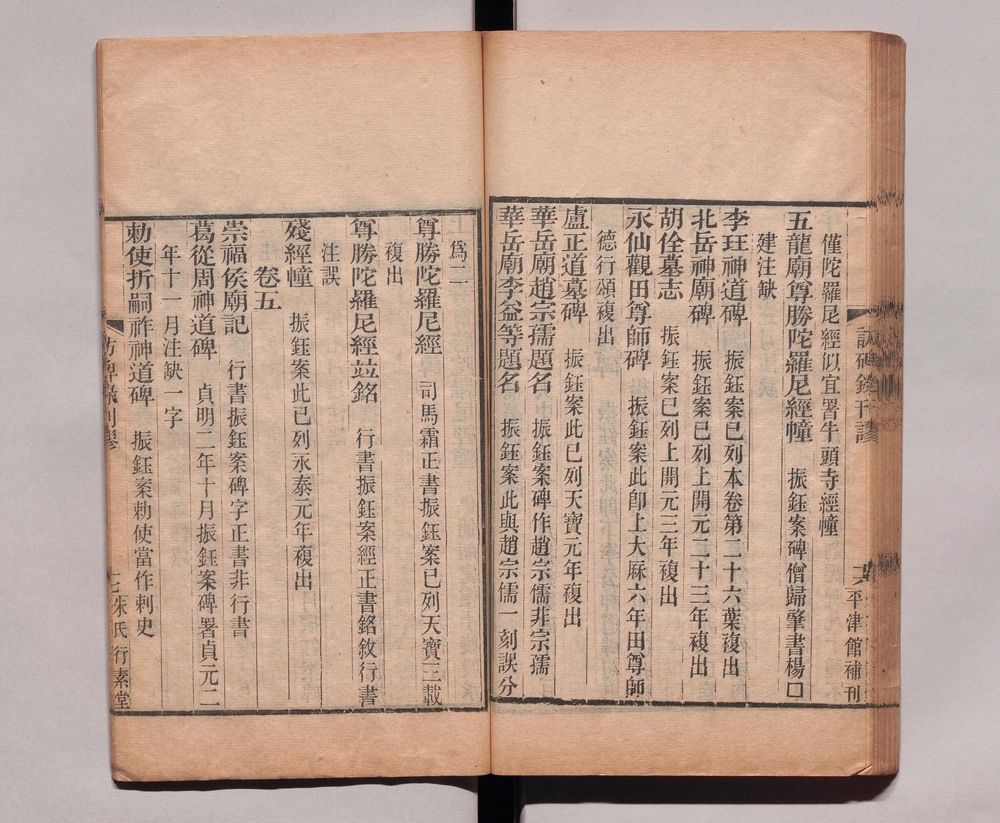 僅陀羅尼經似宜署牛頭寺經幢
五龍廟尊勝陀羅尼經幢　振鈺案碑僧歸肇書楊口
建注缺
李玨神道碑　振鈺案已列本卷第二十六葉複出
北岳神廟碑　振鈺案已列上開元二十三年複出
胡佺墓志　振鈺案已列上開元三年複出
永仙觀田尊師碑　振鈺案此卽上大厤六年田尊師
德行頌複出
盧正道墓碑　振鈺案此已列天寶元年複出
華岳廟趙宗孺題名　振鈺案碑作趙宗儒非宗孺
華岳廟李益等題名　振鈺案此與趙宗儒一刻誤分
爲二
尊勝陀羅尼經　司馬霜正書振鈺案已列天寶三載
複出
尊勝陀羅尼經竝銘　行書振鈺案經正書銘敘行書
注誤
殘經幢　振鈺案此已列永泰元年複出
卷五
崇福侯廟記　行書振鈺案碑字正書非行書
葛從周神道碑　貞明二年十月振鈺案碑署貞元二
年十一月注缺一字
勑使折嗣祚神道碑　振鈺案勑使當作刺史
訪碑錄刊謬
平津館補刊
訪碑錄刊謬
七
朱氏行素堂